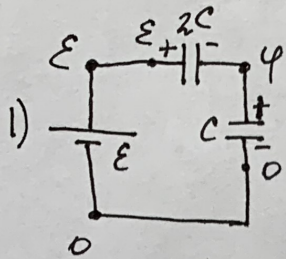 ℰ ℰ + 2C - φ
1) ℰ C + -
0 0